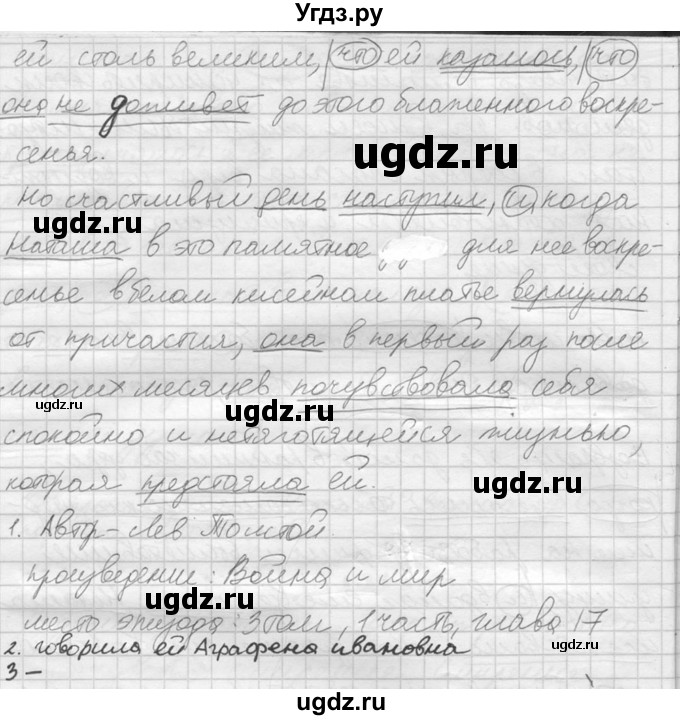 Угдз.ру
ей столь великим, что ей казалось, что
она не доживет до этого блаженного воскре-
сенья.
ugdz.ru
Но счастливый день наступил, и когда
ugdz.ru
ugdz.ru
Наташа в это памятное для нее воскре-
сенье в белом кисейном платье вернулась
ugdz.ru
от причастия, она в первый раз после
многих месяцев почувствовала себя
ugdz.ru
ugdz.ru
спокойно и нетяготящейся жизнью,
которая предстояла ей.
ugdz.ru
1. Автор - Лев Толстой
произведение: Война и мир
ugdz.ru
место эпизода: 3 том, 1 часть, глава 17
2. говорила ей Аграфена ивановна
ugdz.ru
3 —
ugdz.ru